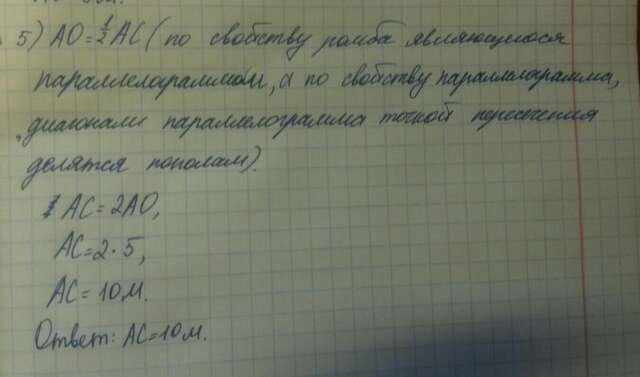 5) АО = 1/2 АС (по свойству ромба являющегося
параллелограммом, а по свойству параллелограмма,
диагонали параллелограмма точкой пересечения
делятся пополам).
АС = 2АО,
АС = 2·5,
АС = 10м.
Ответ: АС = 10м.